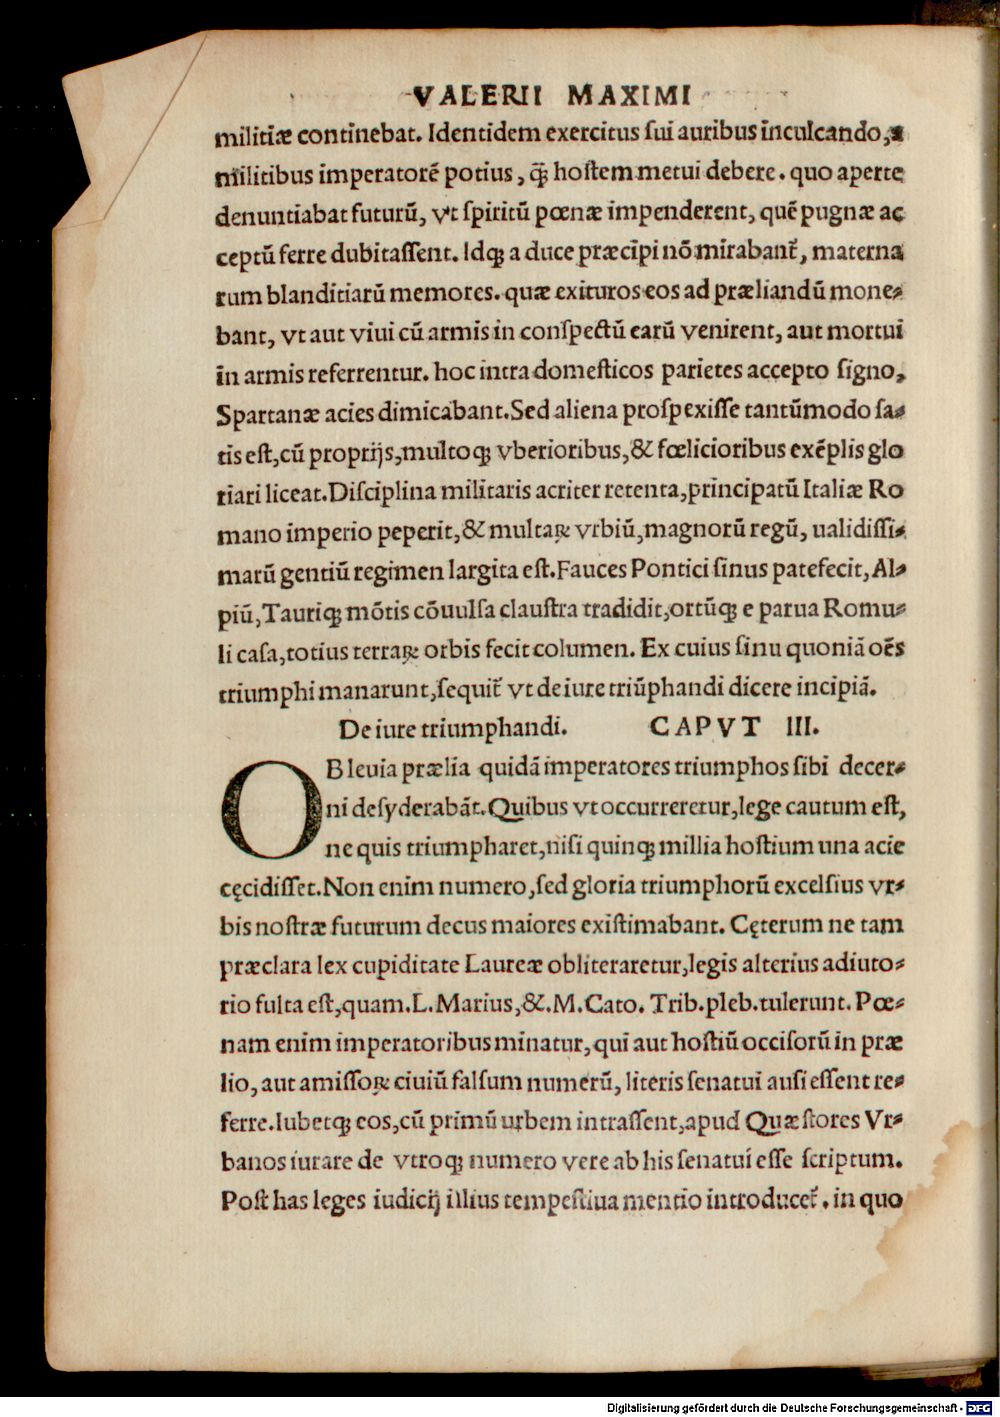 VALERII MAXIMI
militiæ continebat. Identidem exercitus ſui auribus inculcando, a
militibus imperatorẽ potius, q̃ȝ hoſtem metui debere. quo aperte
denuntiabat futurũ, vt ſpiritũ pœnæ impenderent, quẽ pugnæ ac
ceptũ ferre dubitaſſent. Idqȝ a duce præcipi nõ mirabant᷑, materna
rum blanditiarũ memores. quæ exituros eos ad præliandũ mone⸗
bant, vt aut viui cũ armis in conſpectũ earũ venirent, aut mortui
in armis referrentur. hoc intra domeſticos parietes accepto ſigno,
Spartanæ acies dimicabant. Sed aliena proſpexiſſe tantũmodo ſa⸗
tis eſt, cũ proprijs, multoqȝ vberioribus, & fœlicioribus exẽplis glo
riari liceat. Diſciplina militaris acriter retenta, principatũ Italiæ Ro
mano imperio peperit, & multaꝝ vrbiũ, magnorũ regũ, ualidiſſi⸗
marũ gentiũ regimen largita eſt. Fauces Pontici ſinus patefecit, Al⸗
piũ, Tauriqȝ mõtis cõuulſa clauſtra tradidit, ortũqȝ e parua Romu⸗
li caſa, totius terraꝝ orbis fecit columen. Ex cuius ſinu quoniã oẽs
triumphi manarunt, ſequit᷑ vt de iure triũphandi dicere incipiã.
De iure triumphandi. CAPVT III.
OB leuia prælia quidã imperatores triumphos ſibi decer⸗
ni deſyderabãt. Quibus vt occurreretur, lege cautum eſt,
ne quis triumpharet, niſi quinqȝ millia hoſtium una acie
cęcidiſſet. Non enim numero, ſed gloria triumphorũ excelſius vr⸗
bis noſtræ futurum decus maiores exiſtimabant. Cęterum ne tam
præclara lex cupiditate Laureæ obliteraretur, legis alterius adiuto⸗
rio fulta eſt, quam. L. Marius, &. M. Cato. Trib. pleb. tulerunt. Pœ⸗
nam enim imperatoribus minatur, qui aut hoſtiũ occiſorũ in præ
lio, aut amiſſoꝝ ciuiũ falſum numerũ, literis ſenatui auſi eſſent re⸗
ferre. Iubetqȝ eos, cũ primũ urbem intraſſent, apud Quæſtores Vr⸗
banos iurare de vtroqȝ numero vere ab his ſenatui eſſe ſcriptum.
Poſt has leges iudicij illius tempeſtiua mentio introducet᷑. in quo
Digitalisierung gefördert durch die Deutsche Forschungsgemeinschaft - DFG